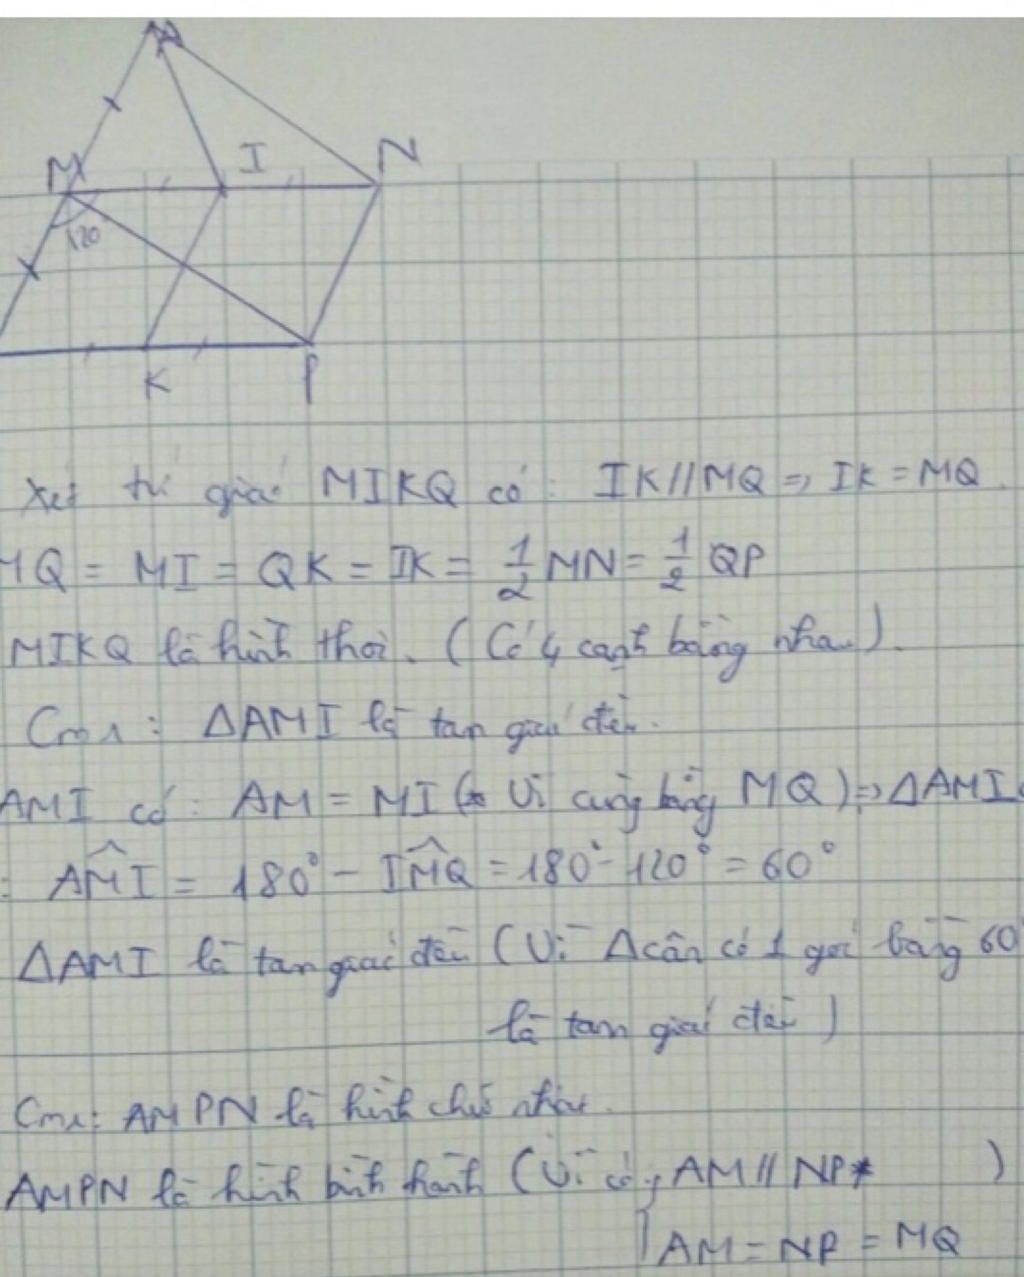 A
M
I
N
120
K
P
Xét tứ giác MIKQ có: IK//MQ => IK = MQ
MQ = MI = QK = IK = 1/2 MN = 1/2 QP
MIKQ là hình thoi. (Có 4 cạnh bằng nhau).
Cm: ΔAMI là tam giác đều.
AMI có: AM = MI (Vì cùng bằng MQ) => ΔAMI
: AMI^ = 180° - IMQ^ = 180° - 120° = 60°
ΔAMI là tam giác đều (Vì Δ cân có 1 góc bằng 60
là tam giác đều)
Cm: AMPN là hình chữ nhật.
AMPN là hình bình hành (Vì có { AM // NP )
AM = NP = MQ